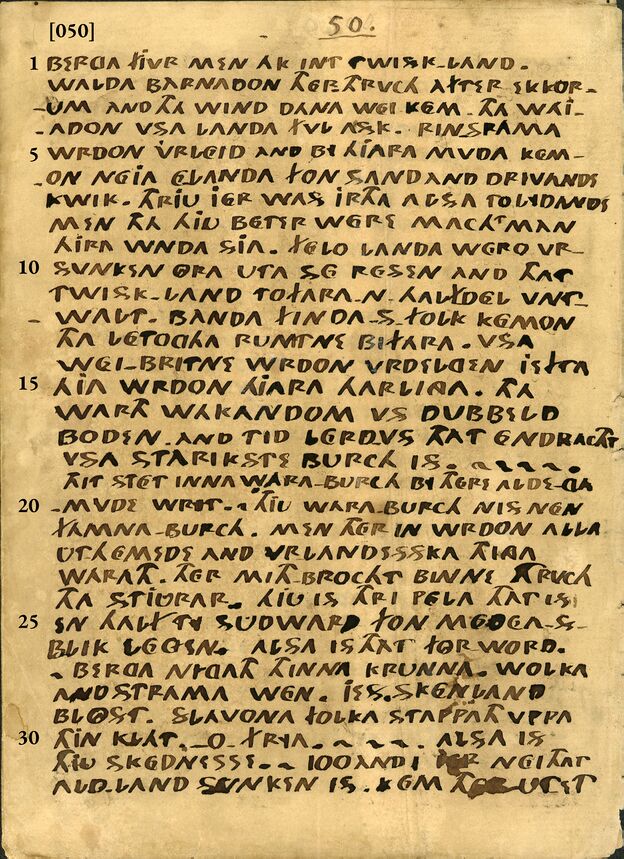 [050]
50.
1 BERGA FJUR MEN AK INT TWISK-LAND.
WALDA BARNADON THERTHRUCH AFTER EKKOR-
-UM AND THA WIND DANA WEI KEM. THA WAI-
-ADON VSA LANDA FUL ASK. RINSTRAMA
5 WRDON VRLEID AND BI HJARA MUDA KEM-
-ON NEIA ELANDA FON SAND AND DRIVANDE
KWIK. THRIU JER WAS IRTHA ALSA TO LIDANDE
MEN THA HIU BETER WERE MACHT MAN
HIRA WNDA SIA. FELO LANDA WERO VR-
10 SUNKEN ORA UTA SE RESEN AND THAT
TWISK-LAND TO FARA-N-HALFDEL VNT-
-WALT. BANDA FINDA-S-FOLK KEMON
THA LETOGHA RUMTNE BIFARA. VSA
WEI-BRITNE WRDON VRDELGEN JEFTHA
15 HJA WRDON HJARA HARLIGA. THA
WARTH WAKANDOM VS DUBBELD
BODEN. AND TID LERDVS THAT ENDRACHT
VSA STARIKSTE BURCH IS. ~ ~ ~ ~.
THIT STET INNA WARA-BURCH BI THERE ALDE-GA
20 -MUDE WRIT. ~ THIU WARA-BURCH NIS NEN
FAMNA-BURCH. MEN THER IN WRDON ALLA
UTHEMEDE AND VRLANDESSKA THINGA
WARATH. THER MITH BROCHT BINNE THRUCH
THA STIURAR. HIU IS THRI PELA THAT IS
25 EN HALFTY SUDWARD FON MEDEA-S-
BLIK LEGEN. ALSA IS THAT FORWORD.
BERGA NIGATH THINNA KRUNNA. WOLKA
AND STRAMA WEN. JES. SKENLAND
BLOST. SLAVONA FOLKA STAPPATH VPPA
30 THIN KLAT. O FRYA. ~ ~ ~. ALSA IS
THIU SKEDNESSE. ~ 100 AND 1 JER NEI THAT
ALD-LAND SUNKEN IS. KEM THER UT ET